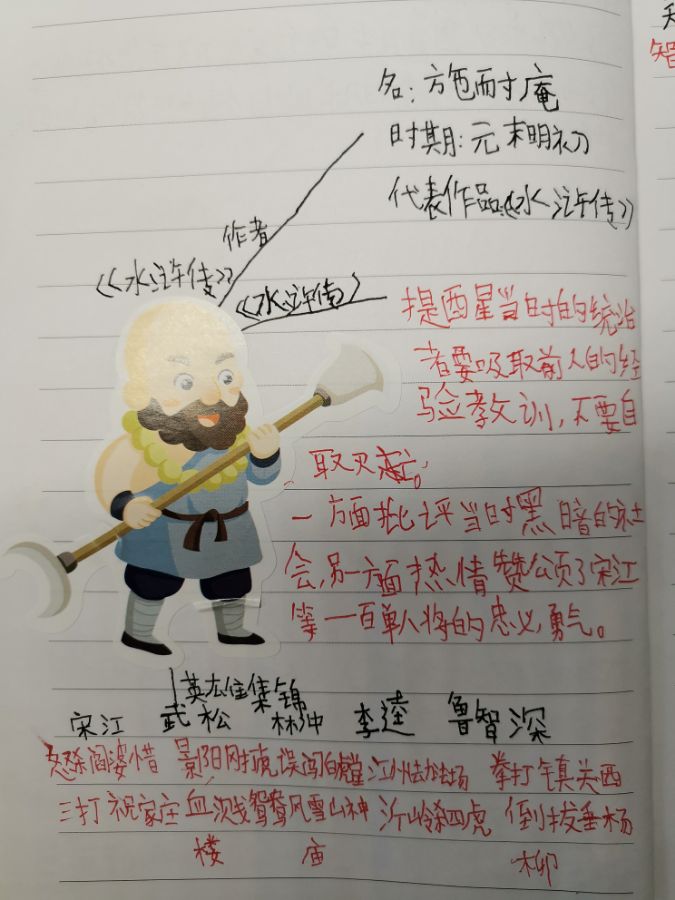 名：施耐庵
时期：元末明初
代表作品：《水浒传》
作者
《水浒传》
《水浒传》
提醒当时的统治
者要吸取前人的经
验教训，不要自
取灭亡。
一方面批评当时黑暗的社
会，另一方面热情赞颂了宋江
等一百单八将的忠义，勇气。
英雄集锦
宋江 武松 林冲 李逵 鲁智深
怒杀阎婆惜 景阳冈打虎 误闯白虎堂 江州劫法场 拳打镇关西
三打祝家庄 血溅鸳鸯 风雪山神 沂岭杀四虎 倒拔垂杨
楼 庙 柳
智